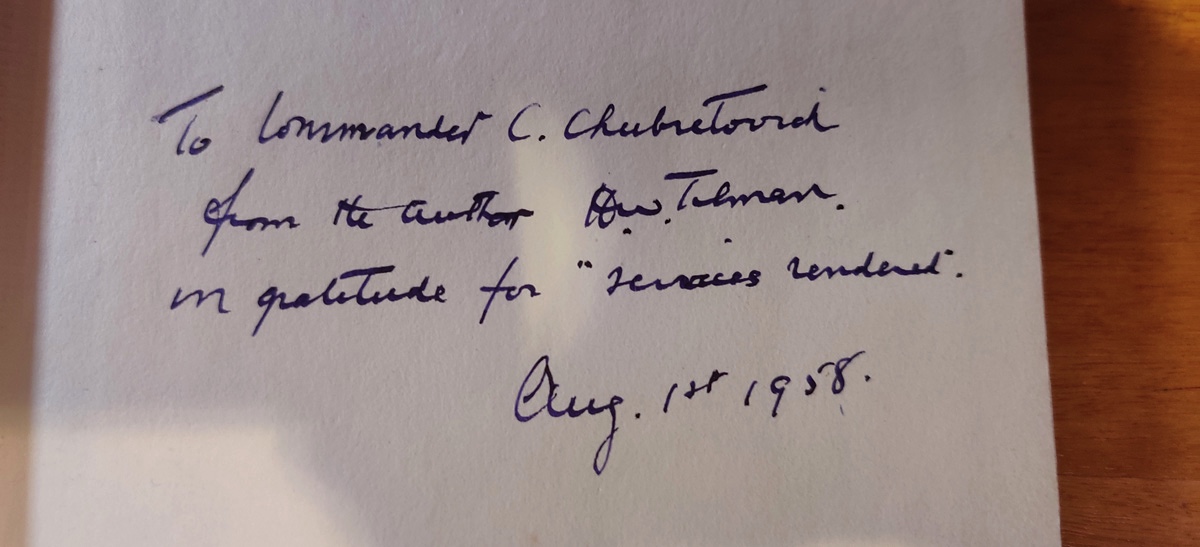 To Commander C. Chubretovich
from the author H.W. Tilman.
in gratitude for "services rendered".
Aug. 1st 1958.